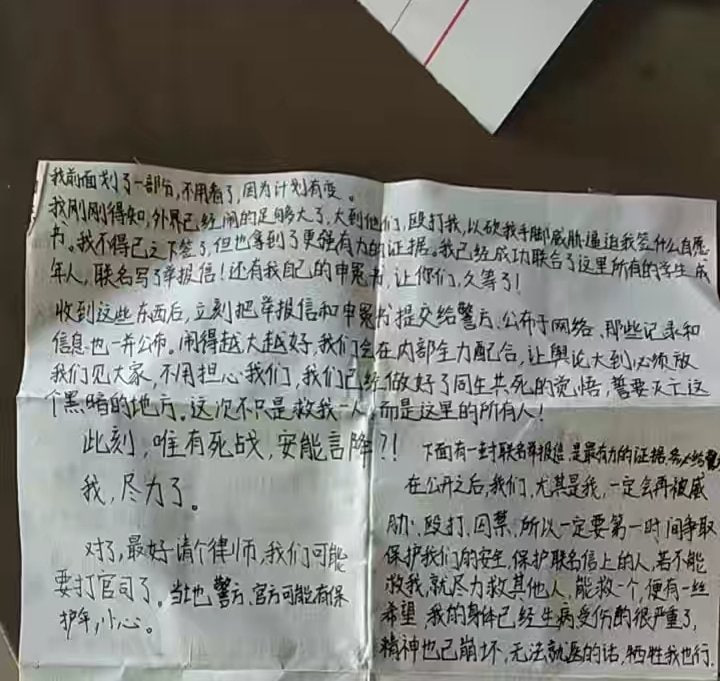 我前面划了一部份，不用看了，因为计划有变。
我刚刚得知，外界已经闹的足够大了，大到他们，殴打我，以砍我手脚威胁逼迫我签什么自愿
书。我不得已之下签了，但也拿到了更强有力的证据。我已经成功联合了这里所有的学生，成
年人，联名写了举报信！还有我自己的申冤书，让你们，久等了！
收到这些东西后，立刻把举报信和申冤书提交给警方、公布于网络、那些记录和
信息也一并公布。闹得越大越好，我们会在内部全力配合，让舆论大到必须放
我们见大家，不用担心我们，我们已经做好了同生共死的觉悟，誓要灭亡这
个黑暗的地方。这次不只是救我一人，而是这里的所有人！
此刻，唯有死战，安能言降？！
我，尽力了。
对了，最好请个律师，我们可能
要打官司了。当地警方、官方可能有保
护伞，小心。
下面有一封联名举报信，是最有力的证据，务必给警
在公开之后，我们，尤其是我，一定会再被威
胁、殴打、囚禁、所以一定要第一时间争取
保护我们的安全，保护联名信上的人，若不能
救我，就尽力救其他人，能救一个，便有一丝
希望。我的身体已经生病受伤的很严重了，
精神也已崩坏，无法就返的话，牺牲我也行，